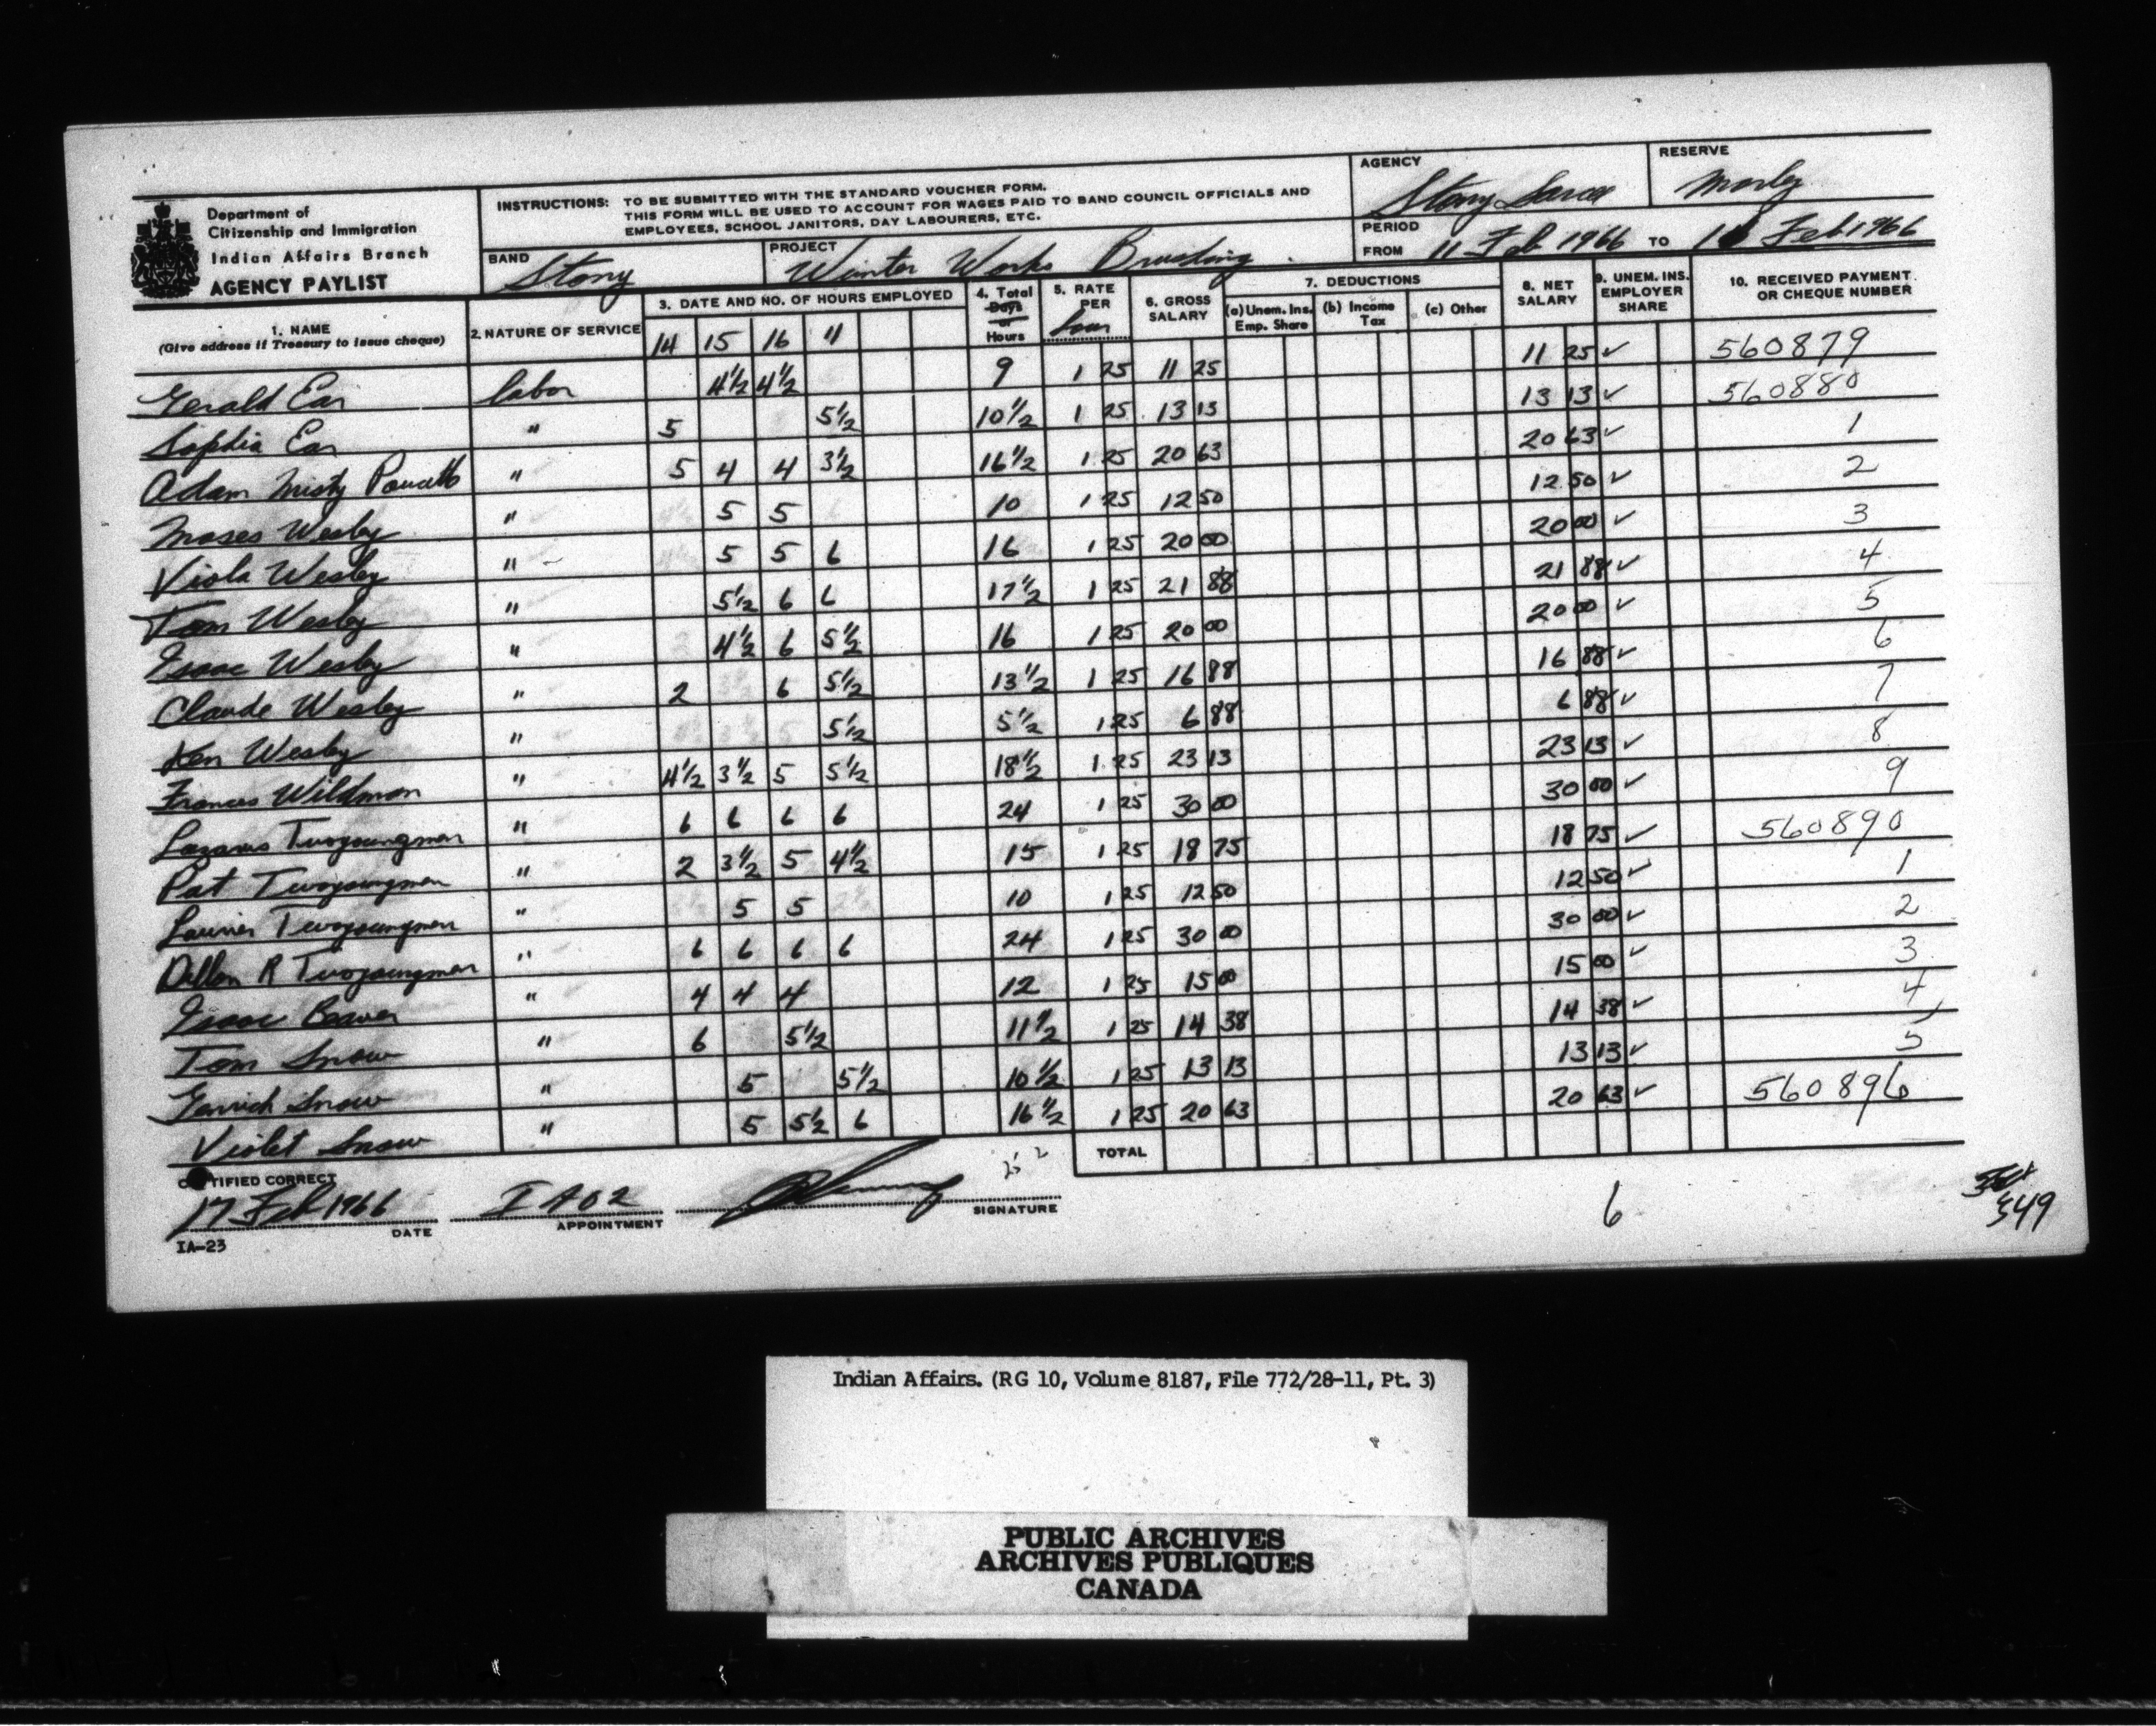 Department of
Citizenship and Immigration
Indian Affairs Branch
AGENCY PAYLIST
INSTRUCTIONS: TO BE SUBMITTED WITH THE STANDARD VOUCHER FORM.
THIS FORM WILL BE USED TO ACCOUNT FOR WAGES PAID TO BAND COUNCIL OFFICIALS AND
EMPLOYEES, SCHOOL JANITORS, DAY LABOURERS, ETC.
AGENCY Stony Sarcee
RESERVE Morley
BAND Stony
PROJECT Winter Works Brushing
PERIOD
FROM 11 Feb 1966 TO 16 Feb 1966
1. NAME
(Give address if Treasury to issue cheque)
2. NATURE OF SERVICE
3. DATE AND NO. OF HOURS EMPLOYED
14 15 16 11
4. Total
Days
or
Hours
5. RATE
PER
hour
6. GROSS
SALARY
7. DEDUCTIONS
(a) Unem. Ins. Emp. Share
(b) Income Tax
(c) Other
8. NET
SALARY
9. UNEM. INS.
EMPLOYER
SHARE
10. RECEIVED PAYMENT
OR CHEQUE NUMBER
Gerald Ear labor 4½ 4½ 9 1 25 11 25 11 25 ✓ 560879
Sophia Ear " 5 5½ 10½ 1 25 13 13 13 13 ✓ 560880
Adam Misty " 5 4 4 3½ 16½ 1 25 20 63 20 63 ✓ 1
Moses Wesley " 5 5 10 1 25 12 50 12 50 ✓ 2
Viola Wesley " 5 5 6 16 1 25 20 00 20 00 ✓ 3
Tom Wesley " 5½ 6 6 17½ 1 25 21 88 21 88 ✓ 4
Isaac Wesley " 4½ 6 5½ 16 1 25 20 00 20 00 ✓ 5
Claude Wesley " 2 6 5½ 13½ 1 25 16 88 16 88 ✓ 6
Ken Wesley " 5½ 5½ 1 25 6 88 6 88 ✓ 7
Frances Wildman " 4½ 3½ 5 5½ 18½ 1 25 23 13 23 13 ✓ 8
Lazarus Twoyoungmen " 6 6 6 6 24 1 25 30 00 30 00 ✓ 9
Pat Twoyoungmen " 2 3½ 5 4½ 15 1 25 18 75 18 75 ✓ 560890
Laurier Twoyoungmen " 5 5 10 1 25 12 50 12 50 ✓ 1
Dillon R Twoyoungmen " 6 6 6 6 24 1 25 30 00 30 00 ✓ 2
Isaac Beaver " 4 4 4 12 1 25 15 00 15 00 ✓ 3
Tom Snow " 6 5½ 11½ 1 25 14 38 14 38 ✓ 4
Snow " 5 5½ 10½ 1 25 13 13 13 13 ✓ 5
Violet Snow " 5 5½ 6 16½ 1 25 20 63 20 63 ✓ 560896
TOTAL
CERTIFIED CORRECT
17 Feb 1966 I A 02
DATE APPOINTMENT SIGNATURE
IA-23
6
349
Indian Affairs. (RG 10, Volume 8187, File 772/28-11, Pt. 3)
PUBLIC ARCHIVES
ARCHIVES PUBLIQUES
CANADA